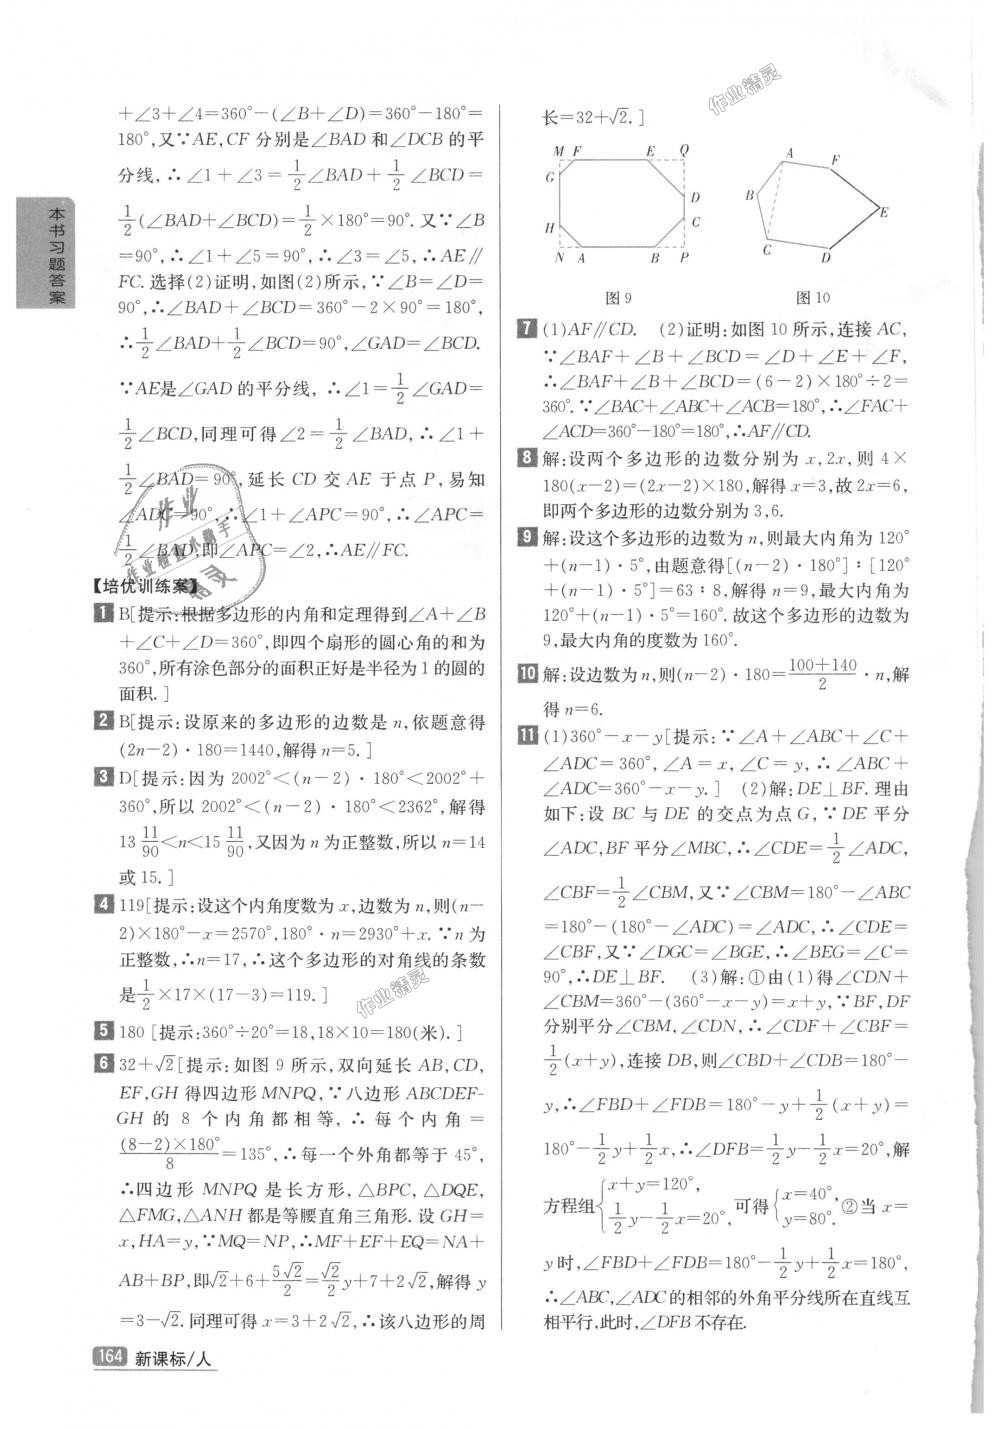 本书习题答案
+∠3+∠4=360°-(∠B+∠D)=360°-180°=
180°,又∵AE,CF 分别是∠BAD 和∠DCB 的平
分线,∴∠1+∠3=1/2∠BAD+1/2∠BCD=
1/2(∠BAD+∠BCD)=1/2×180°=90°.又∵∠B
=90°,∴∠1+∠5=90°,∴∠3=∠5,∴AE∥
FC.选择(2)证明,如图(2)所示,∵∠B=∠D=
90°,∴∠BAD+∠BCD=360°-2×90°=180°,
∴1/2∠BAD+1/2∠BCD=90°,∠GAD=∠BCD.
∵AE是∠GAD 的平分线,∴∠1=1/2∠GAD=
1/2∠BCD,同理可得∠2=1/2∠BAD,∴∠1+
1/2∠BAD=90°,延长 CD 交 AE 于点 P,易知
∠ADC=90°,∴∠1+∠APC=90°,∴∠APC=
1/2∠BAD,即∠APC=∠2,∴AE∥FC.
【培优训练案】
1 B[提示:根据多边形的内角和定理得到∠A+∠B
+∠C+∠D=360°,即四个扇形的圆心角的和为
360°,所有涂色部分的面积正好是半径为1的圆的
面积.]
2 B[提示:设原来的多边形的边数是 n,依题意得
(2n-2)·180=1440,解得n=5.]
3 D[提示:因为 2002°<(n-2)·180°<2002°+
360°,所以 2002°<(n-2)·180°<2362°,解得
13 11/90<n<15 11/90,又因为 n 为正整数,所以 n=14
或15.]
4 119[提示:设这个内角度数为 x,边数为 n,则(n-
2)×180°-x=2570°,180°·n=2930°+x.∵n 为
正整数,∴n=17,∴这个多边形的对角线的条数
是1/2×17×(17-3)=119.]
5 180 [提示:360°÷20°=18,18×10=180(米).]
6 32+√2[提示:如图 9 所示,双向延长 AB,CD,
EF,GH 得四边形 MNPQ,∵八边形 ABCDEF-
GH 的 8 个内角都相等,∴每个内角=
(8-2)×180°/8=135°,∴每一个外角都等于 45°,
∴四边形 MNPQ 是长方形,△BPC,△DQE,
△FMG,△ANH 都是等腰直角三角形.设 GH=
x,HA=y,∵MQ=NP,∴MF+EF+EQ=NA+
AB+BP,即√2+6+5√2/2=√2/2y+7+2√2,解得 y
=3-√2.同理可得 x=3+2√2,∴该八边形的周
164 新课标/人
长=32+√2.]
M F E Q
G D
H C
N A B P
图 9
A F
B E
C D
图 10
7 (1)AF∥CD. (2)证明:如图 10 所示,连接 AC,
∵∠BAF+∠B+∠BCD=∠D+∠E+∠F,
∴∠BAF+∠B+∠BCD=(6-2)×180°÷2=
360°.∵∠BAC+∠ABC+∠ACB=180°,∴∠FAC+
∠ACD=360°-180°=180°,∴AF∥CD.
8 解:设两个多边形的边数分别为 x,2x,则 4×
180(x-2)=(2x-2)×180,解得 x=3,故 2x=6,
即两个多边形的边数分别为 3,6.
9 解:设这个多边形的边数为 n,则最大内角为 120°
+(n-1)·5°,由题意得[(n-2)·180°]:[120°
+(n-1)·5°]=63:8,解得 n=9,最大内角为
120°+(n-1)·5°=160°.故这个多边形的边数为
9,最大内角的度数为 160°.
10 解:设边数为 n,则(n-2)·180=(100+140)/2·n,解
得 n=6.
11 (1)360°-x-y[提示:∵∠A+∠ABC+∠C+
∠ADC=360°,∠A=x,∠C=y,∴∠ABC+
∠ADC=360°-x-y.] (2)解:DE⊥BF.理由
如下:设 BC 与 DE 的交点为点 G,∵DE 平分
∠ADC,BF 平分∠MBC,∴∠CDE=1/2∠ADC,
∠CBF=1/2∠CBM,又∵∠CBM=180°-∠ABC
=180°-(180°-∠ADC)=∠ADC,∴∠CDE=
∠CBF,又∵∠DGC=∠BGE,∴∠BEG=∠C=
90°,∴DE⊥BF. (3)解:①由(1)得∠CDN+
∠CBM=360°-(360°-x-y)=x+y,∵BF,DF
分别平分∠CBM,∠CDN,∴∠CDF+∠CBF=
1/2(x+y),连接 DB,则∠CBD+∠CDB=180°-
y,∴∠FBD+∠FDB=180°-y+1/2(x+y)=
180°-1/2y+1/2x,∴∠DFB=1/2y-1/2x=20°,解
方程组{x+y=120°,1/2y-1/2x=20°,可得{x=40°,y=80°.②当 x=
y 时,∠FBD+∠FDB=180°-1/2y+1/2x=180°,
∴∠ABC,∠ADC 的相邻的外角平分线所在直线互
相平行,此时,∠DFB 不存在.
作业精灵
作业精灵
作业检查小助手